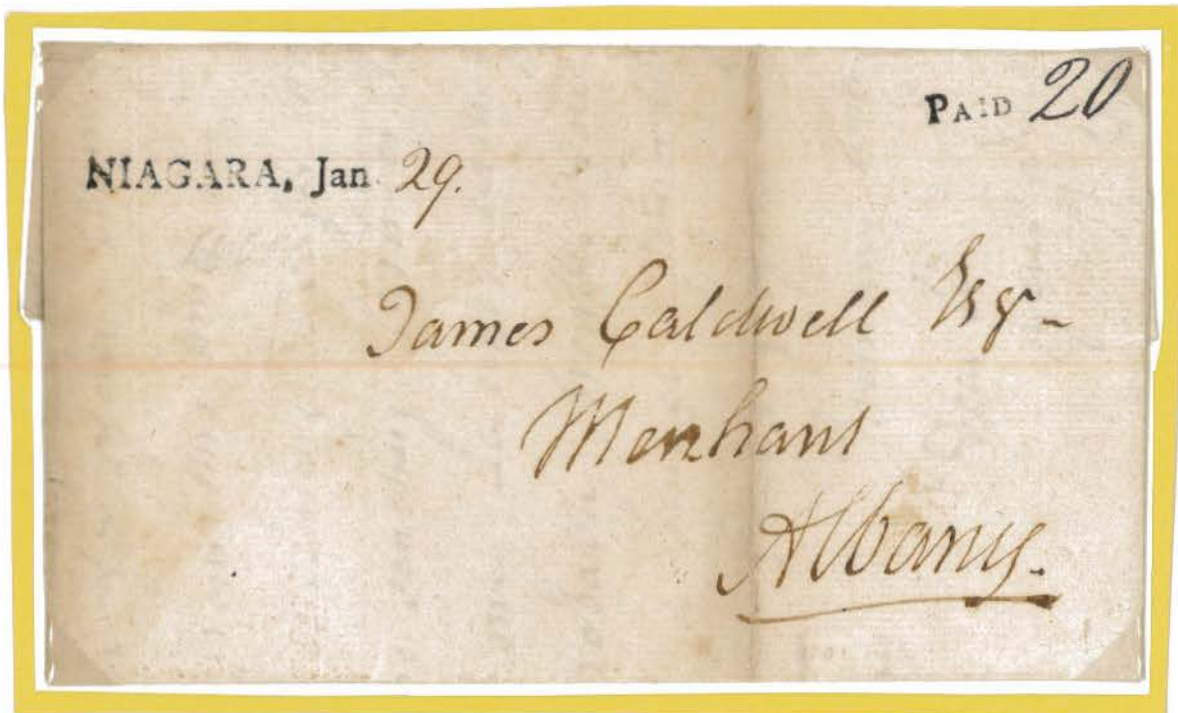 PAID 20
NIAGARA, Jan. 29.
James Caldwell Esqr-
Merchant
Albany.